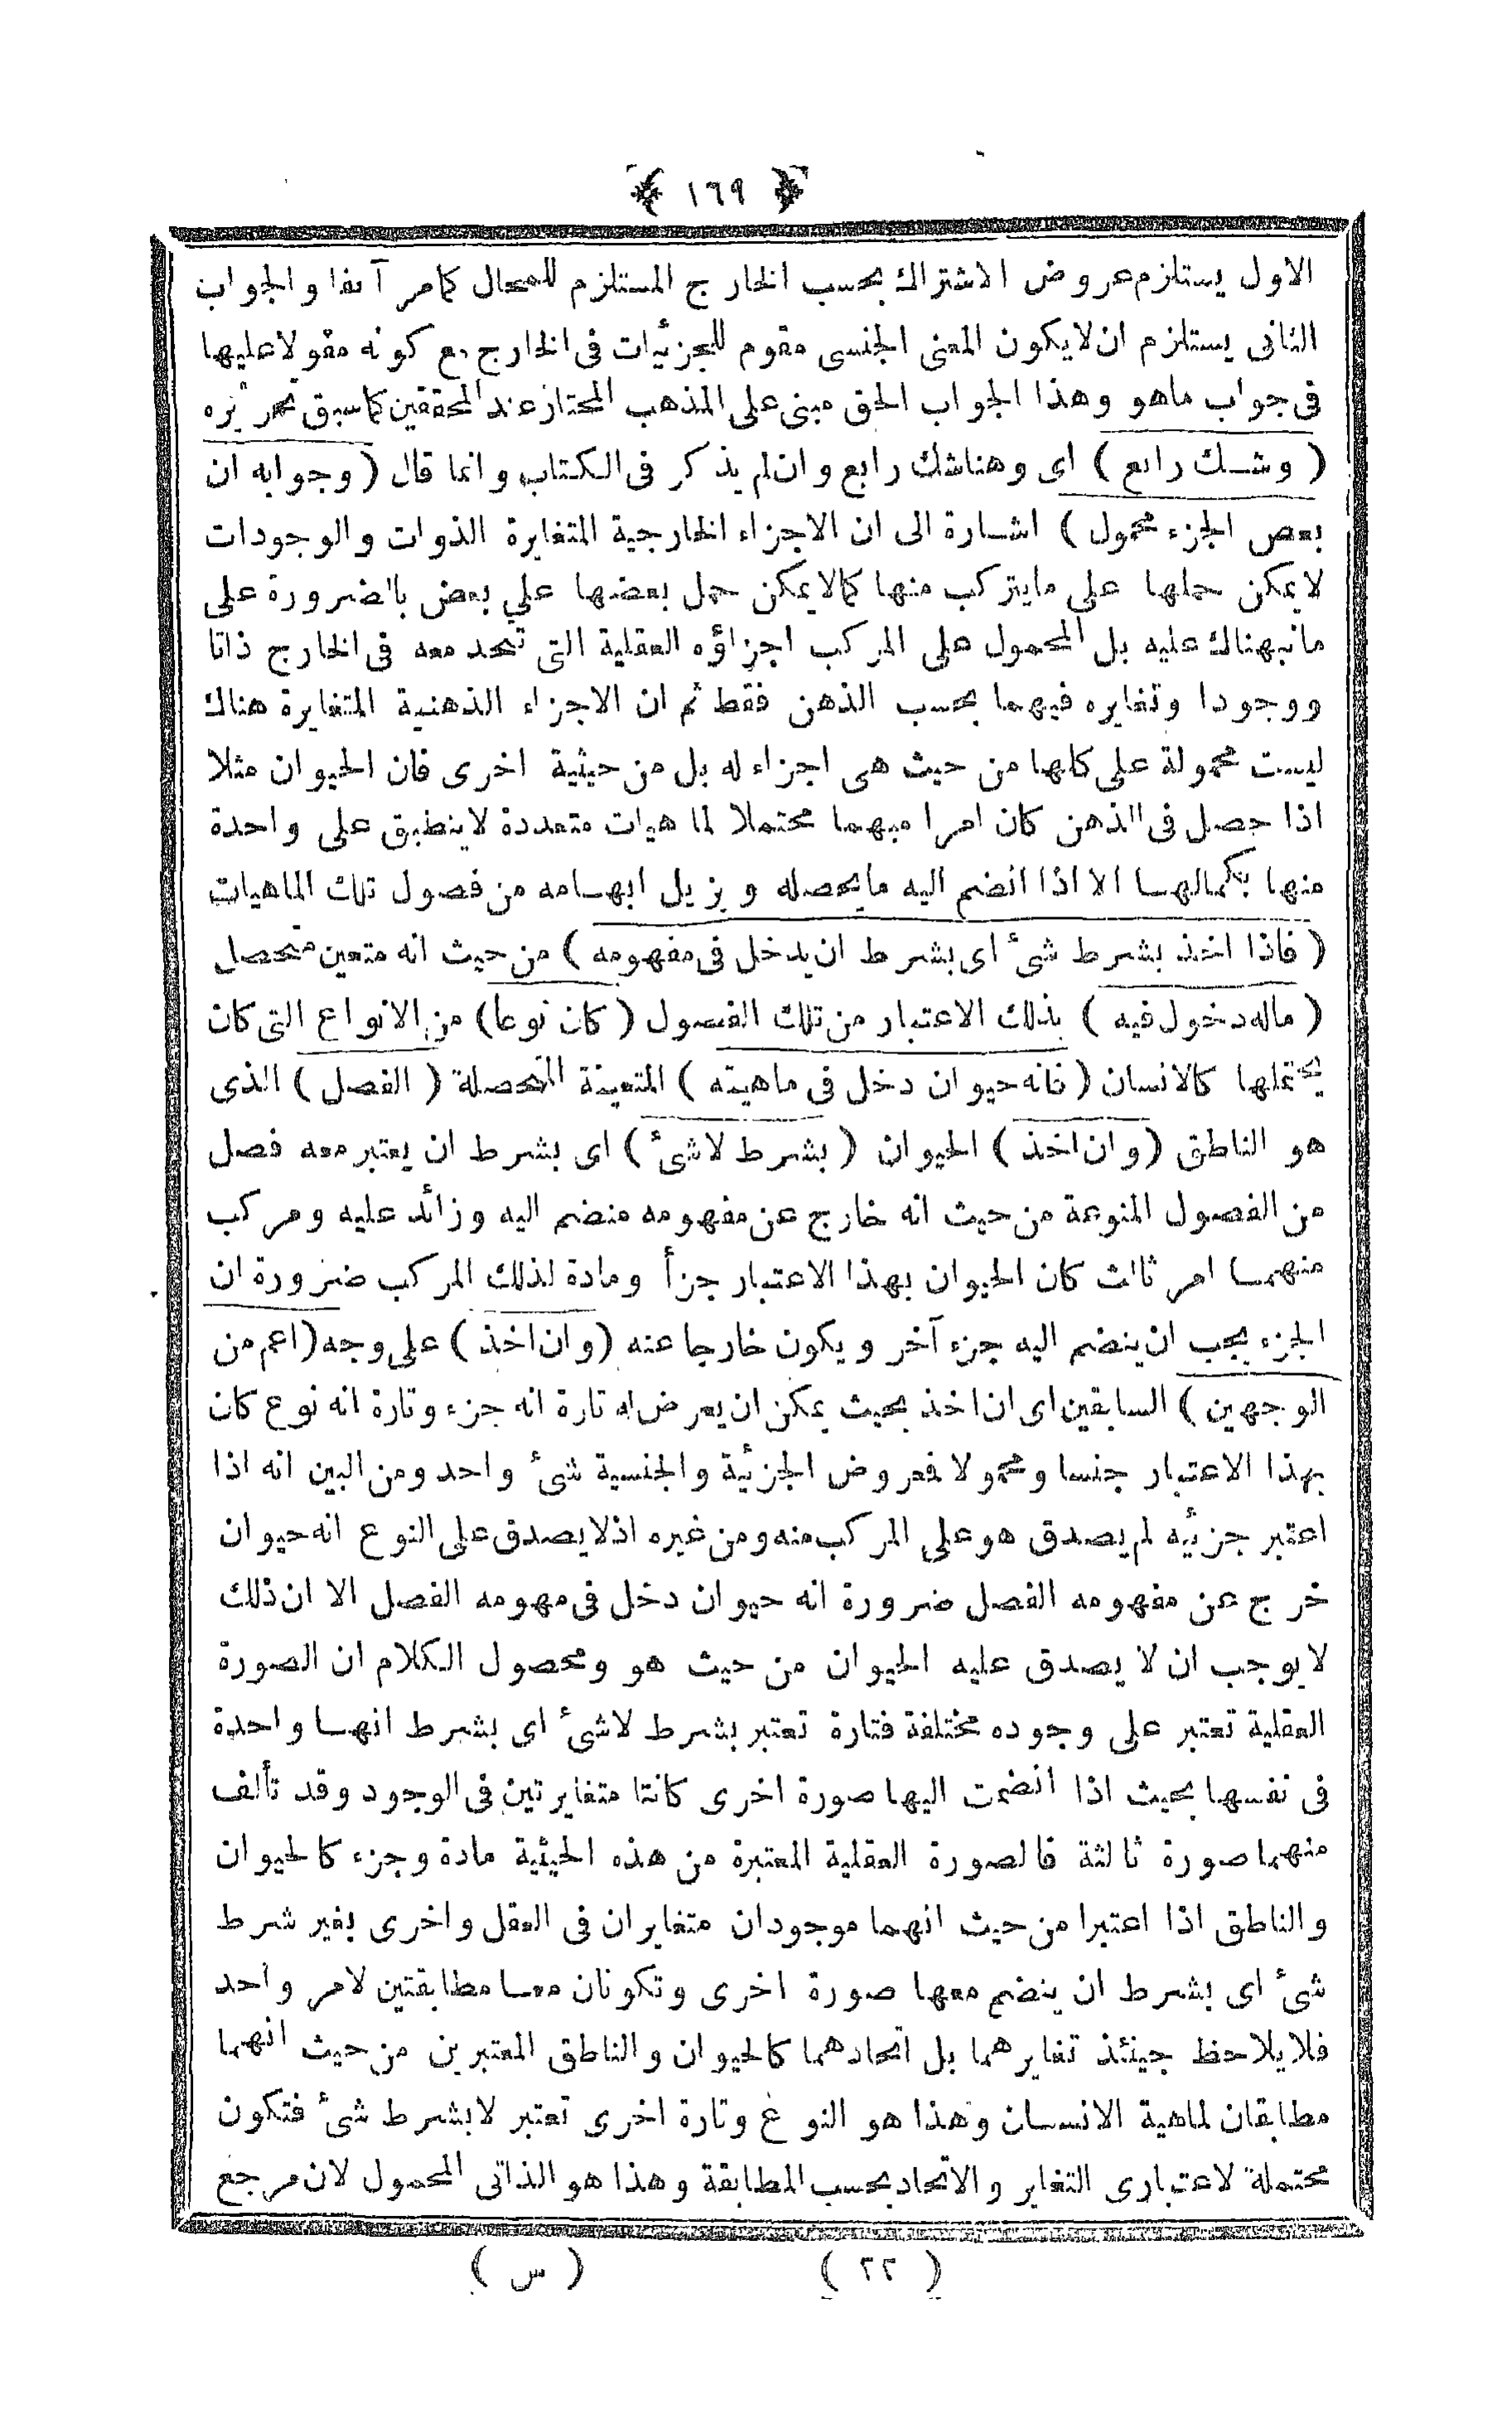 ﴿ ١٦٩ ﴾
الاول يستلزم عروض الاشتراك بحسب الخارج المستلزم للمحال كامر آنفا والجواب
الثانى يستلزم ان لايكون المعنى الجنسى مقوم للجزئيات فى الخارج مع كونه مقولا عليها
فى جواب ماهو وهذا الجواب الحق مبنى على المذهب المختار عند المحققين كماسبق تحريره
( وشك رابع ) اى وهناشك رابع وان لم يذكر فى الكتاب وانما قال ( وجوابه ان
بعض الجزء محمول ) اشارة الى ان الاجزاء الخارجية المتغايرة الذوات والوجودات
لايمكن حملها على مايتركب منها كمالايمكن حمل بعضها على بعض بالضرورة على
مانبهناك عليه بل المحمول على المركب اجزاؤه العقلية التى تتحد معه فى الخارج ذاتا
ووجودا وتغايره فيهما بحسب الذهن فقط ثم ان الاجزاء الذهنية المتغايرة هناك
ليست محمولة على كلها من حيث هى اجزاء له بل من حيثية اخرى فان الحيوان مثلا
اذا حصل فى الذهن كان امرا مبهما محتملا لماهيات متعددة لاينطبق على واحدة
منها بكمالها الا اذا انضم اليه مايحصله ويزيل ابهامه من فصول تلك الماهيات
( فاذا اخذ بشرط شئ اى بشرط ان يدخل فى مفهومه ) من حيث انه متعين متحصل
( ماله دخول فيه ) بذلك الاعتبار من تلك الفصول ( كان نوعا ) من الانواع التى كان
يحتملها كالانسان ( فانه حيوان دخل فى ماهيته ) المتعينة المتحصلة ( الفصل ) الذى
هو الناطق ( وان اخذ ) الحيوان ( بشرط لاشئ ) اى بشرط ان يعتبر معه فصل
من الفصول المنوعة من حيث انه خارج عن مفهومه منضم اليه وزائد عليه ومركب
منهما امر ثالث كان الحيوان بهذا الاعتبار جزأ ومادة لذلك المركب ضرورة ان
الجزء يجب ان ينضم اليه جزء آخر ويكون خارجا عنه ( وان اخذ ) على وجه ( اعم من
الوجهين ) السابقين اى ان اخذ بحيث يمكن ان يعرض له تارة انه جزء وتارة انه نوع كان
بهذا الاعتبار جنسا ومحمولا فعروض الجزئية والجنسية شئ واحد ومن البين انه اذا
اعتبر جزئيه لم يصدق هو على المركب منه ومن غيره اذلايصدق على النوع انه حيوان
خرج عن مفهومه الفصل ضرورة انه حيوان دخل فى مهومه الفصل الا ان ذلك
لايوجب ان لا يصدق عليه الحيوان من حيث هو ومحصول الكلام ان الصورة
العقلية تعتبر على وجوده مختلفة فتارة تعتبر بشرط لاشئ اى بشرط انها واحدة
فى نفسها بحيث اذا انضمت اليها صورة اخرى كانتا متغايرتين فى الوجود وقد تألف
منهما صورة ثالثة فالصورة العقلية المعتبرة من هذه الحيثية مادة وجزء كالحيوان
والناطق اذا اعتبرا من حيث انهما موجودان متغايران فى العقل واخرى بغير شرط
شئ اى بشرط ان ينضم معها صورة اخرى وتكونان معا مطابقتين لامر واحد
فلايلاحظ حينئذ تغايرهما بل اتحادهما كالحيوان والناطق المعتبرين من حيث انهما
مطابقان لماهية الانسان وهذا هو النوع وتارة اخرى تعتبر لابشرط شئ فتكون
محتملة لاعتبارى التغاير والاتحاد بحسب المطابقة وهذا هو الذاتى المحمول لان مرجع
( ٢٢ ) ( س )